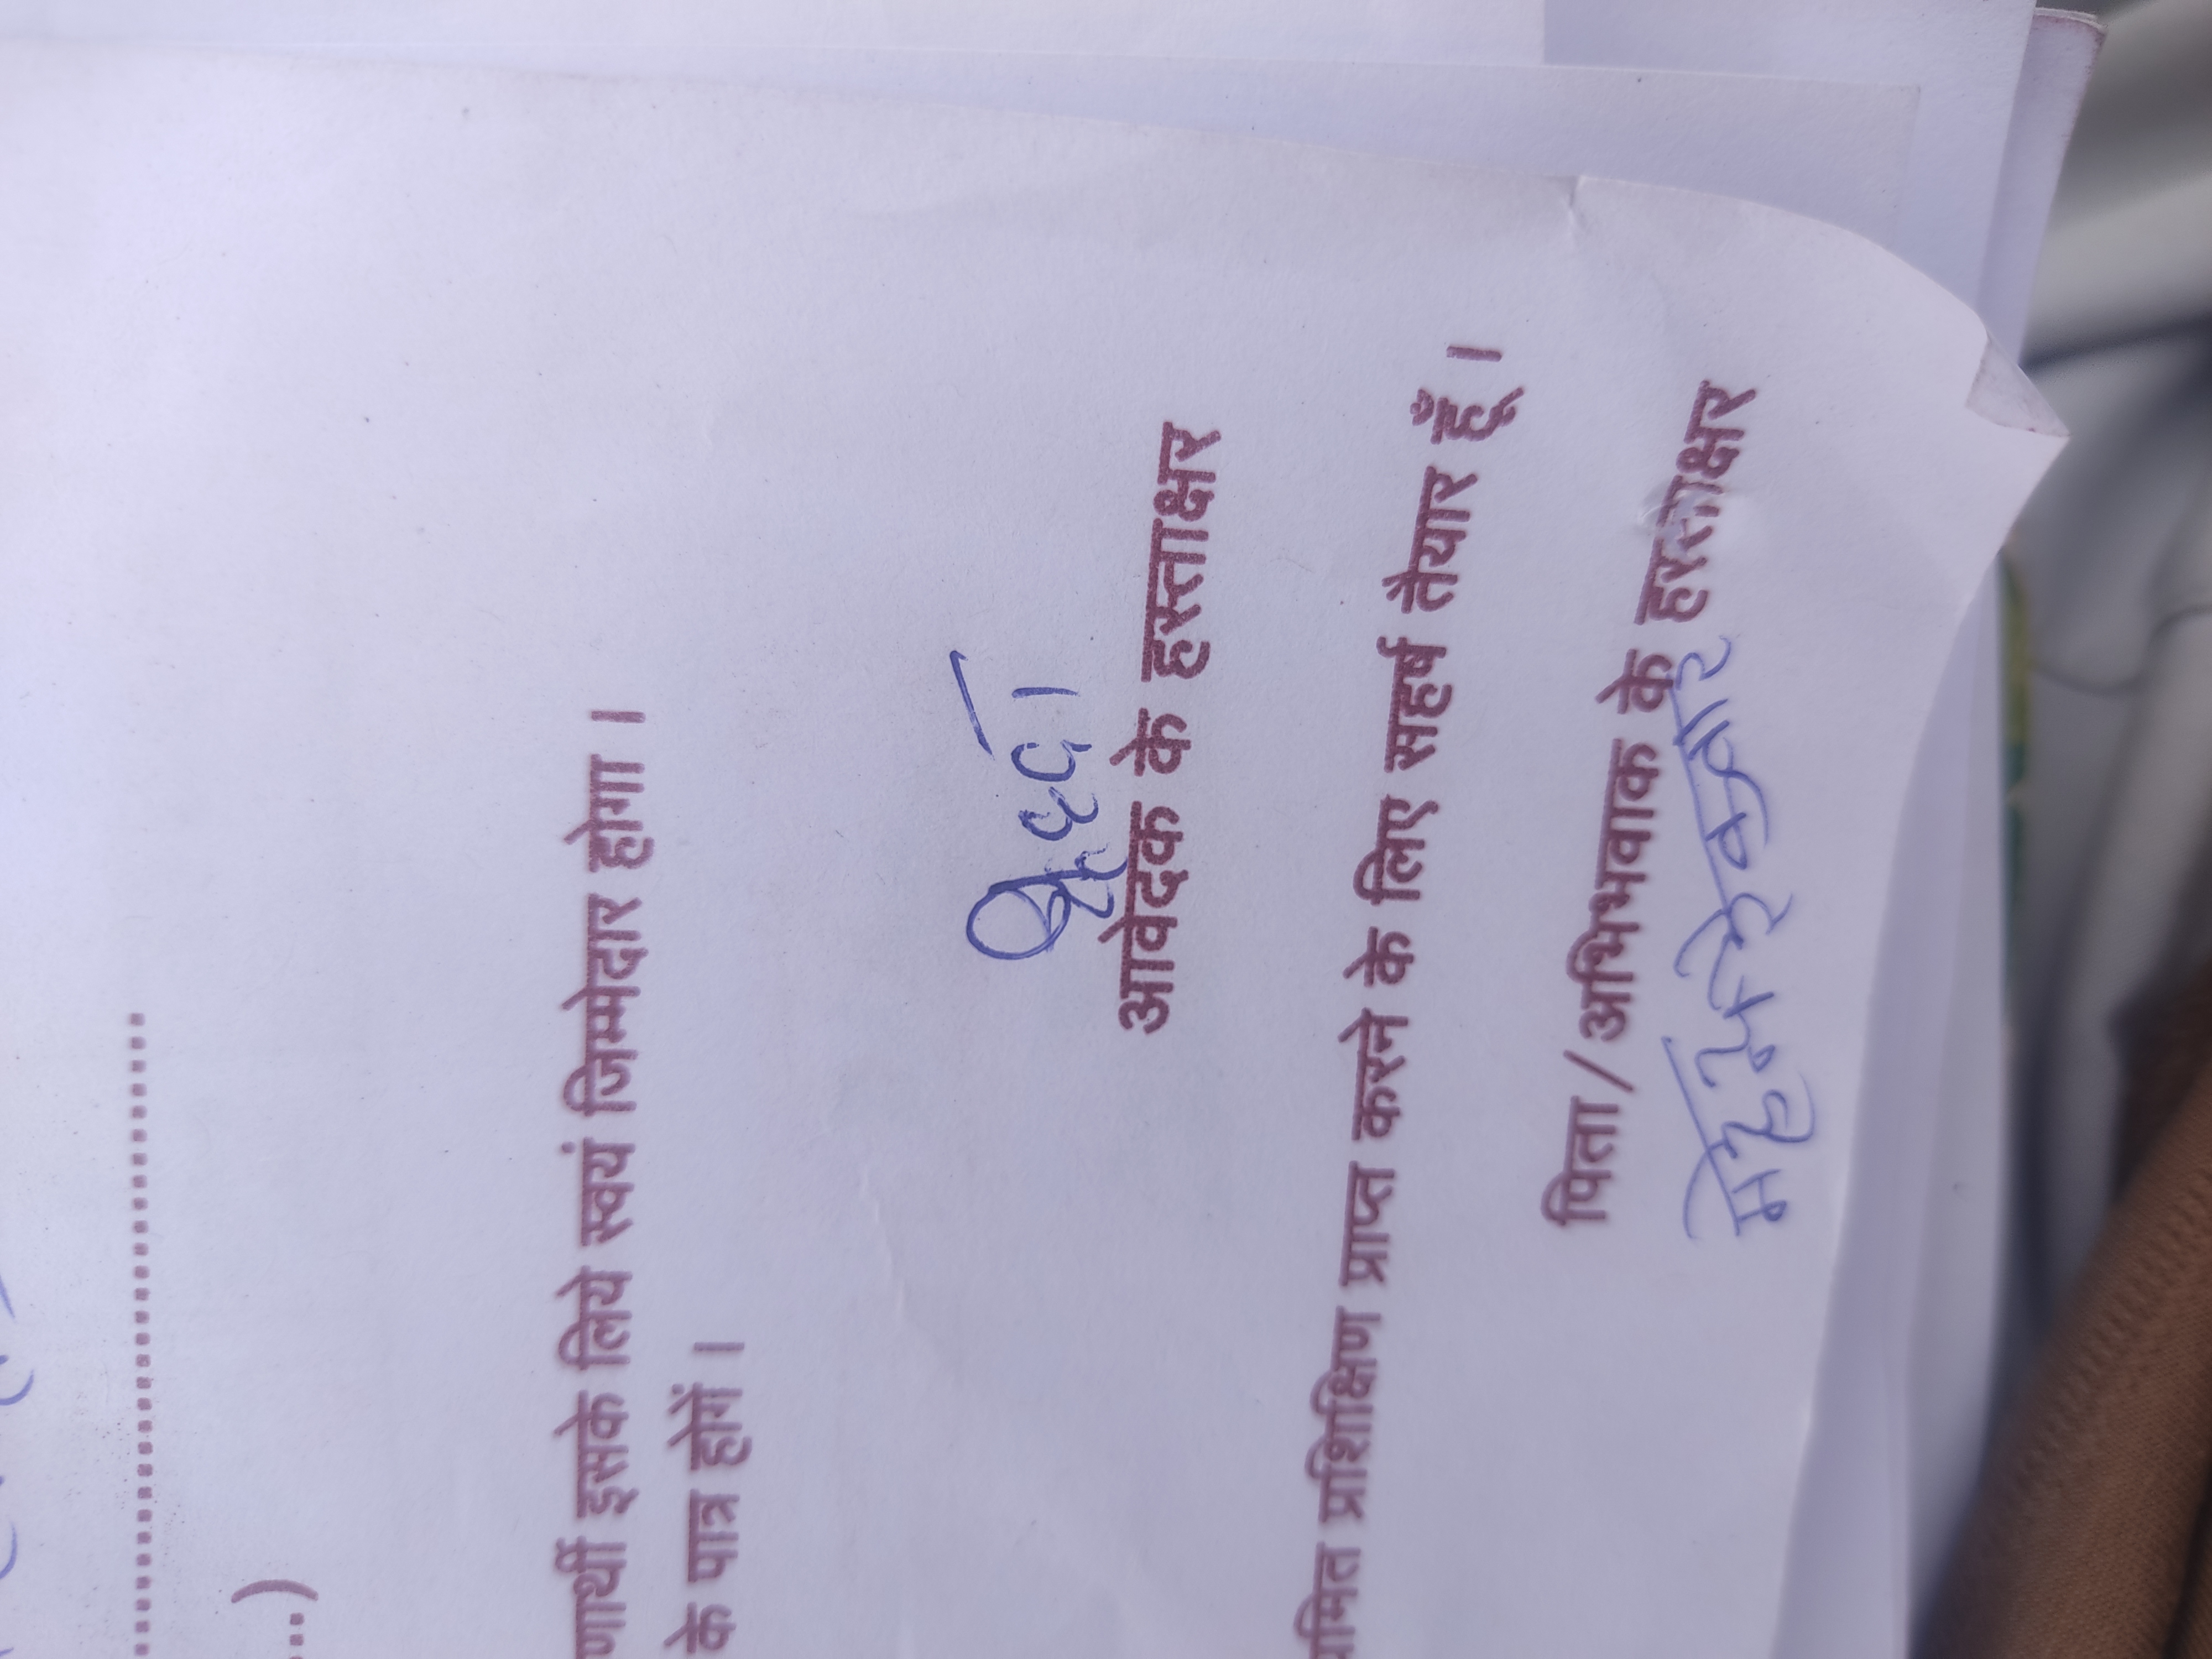 ...)
णार्थी इसके लिये स्वयं जिम्मेदार होगा ।
के पात्र होगें ।
आवेदक के हस्ताक्षर
यमित प्रशिक्षिण प्राप्त करने के लिए सहर्ष तैयार हूँ ।
पिता/अभिभवाक के हस्ताक्षर